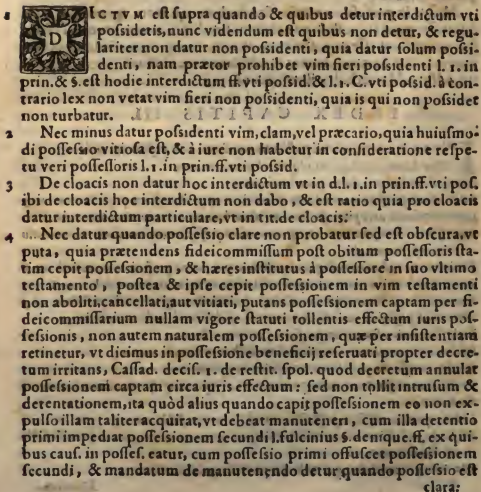 1 DICTVM est supra quando & quibus detur interdictum vti
possidetis, nunc videndum est quibus non detur, & regu-
lariter non datur non possidenti, quia datur solum possi-
denti, nam prætor prohibet vim fieri possidenti l. 1. in
prin. & §. est hodie interdictum ff. vti possid. & l. 1. C. vti possid. à con-
trario lex non vetat vim fieri non possidenti, quia is qui non possidet
non turbatur.
2 Nec minus datur possidenti vim, clam, vel præcario, quia huiusmo-
di possessio vitiosa est, & à iure non habetur in consideratione respe-
ctu veri possessoris l. 1. in prin. ff. vti possid.
3 De cloacis non datur hoc interdictum vt in d. l. 1. in prin. ff. vti pos.
ibi de cloacis hoc interdictum non dabo, & est ratio quia pro cloacis
datur interdictum particulare, vt in tit. de cloacis.
4 Nec datur quando possessio clare non probatur sed est obscura, vt
puta, quia prætendens fideicommissum post obitum possessoris sta-
tim cepit possessionem, & hæres institutus à possessore in suo vltimo
testamento, postea & ipse cepit possessionem in vim testamenti
non aboliti, cancellati, aut vitiati, putans possessionem captam per fi-
deicommissarium nullam vigore statuti tollentis effectum iuris pos-
sessionis, non autem naturalem possessionem, quæ per insistentiam
retinetur, vt dicimus in possessione beneficij reseruati propter decre-
tum irritans, Cassad. decis. 1. de restit. spol. quod decretum annulat
possessionem captam circa iuris effectum: sed non tollit intrusum &
detentationem, ita quòd alius quando capit possessionem eo non ex-
pulso illam taliter acquirat, vt debeat manuteneri, cum illa detentio
primi impediat possessionem secundi l. fulcinius §. denique. ff. ex qui-
bus caus. in posses. eatur, cum possessio primi offuscet possessionem
secundi, & mandatum de manutenendo detur quando possessio est
clara: